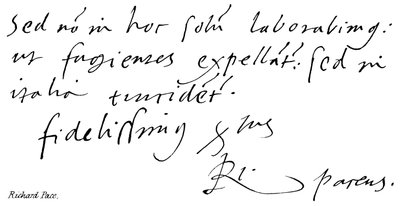 Sed nō in hoc solū laborabimꝰ:
ut fugienses expellāt: sed in
italia trucidēt.
fidelissimꝰ
Ri. paceus.
Richard Pace.